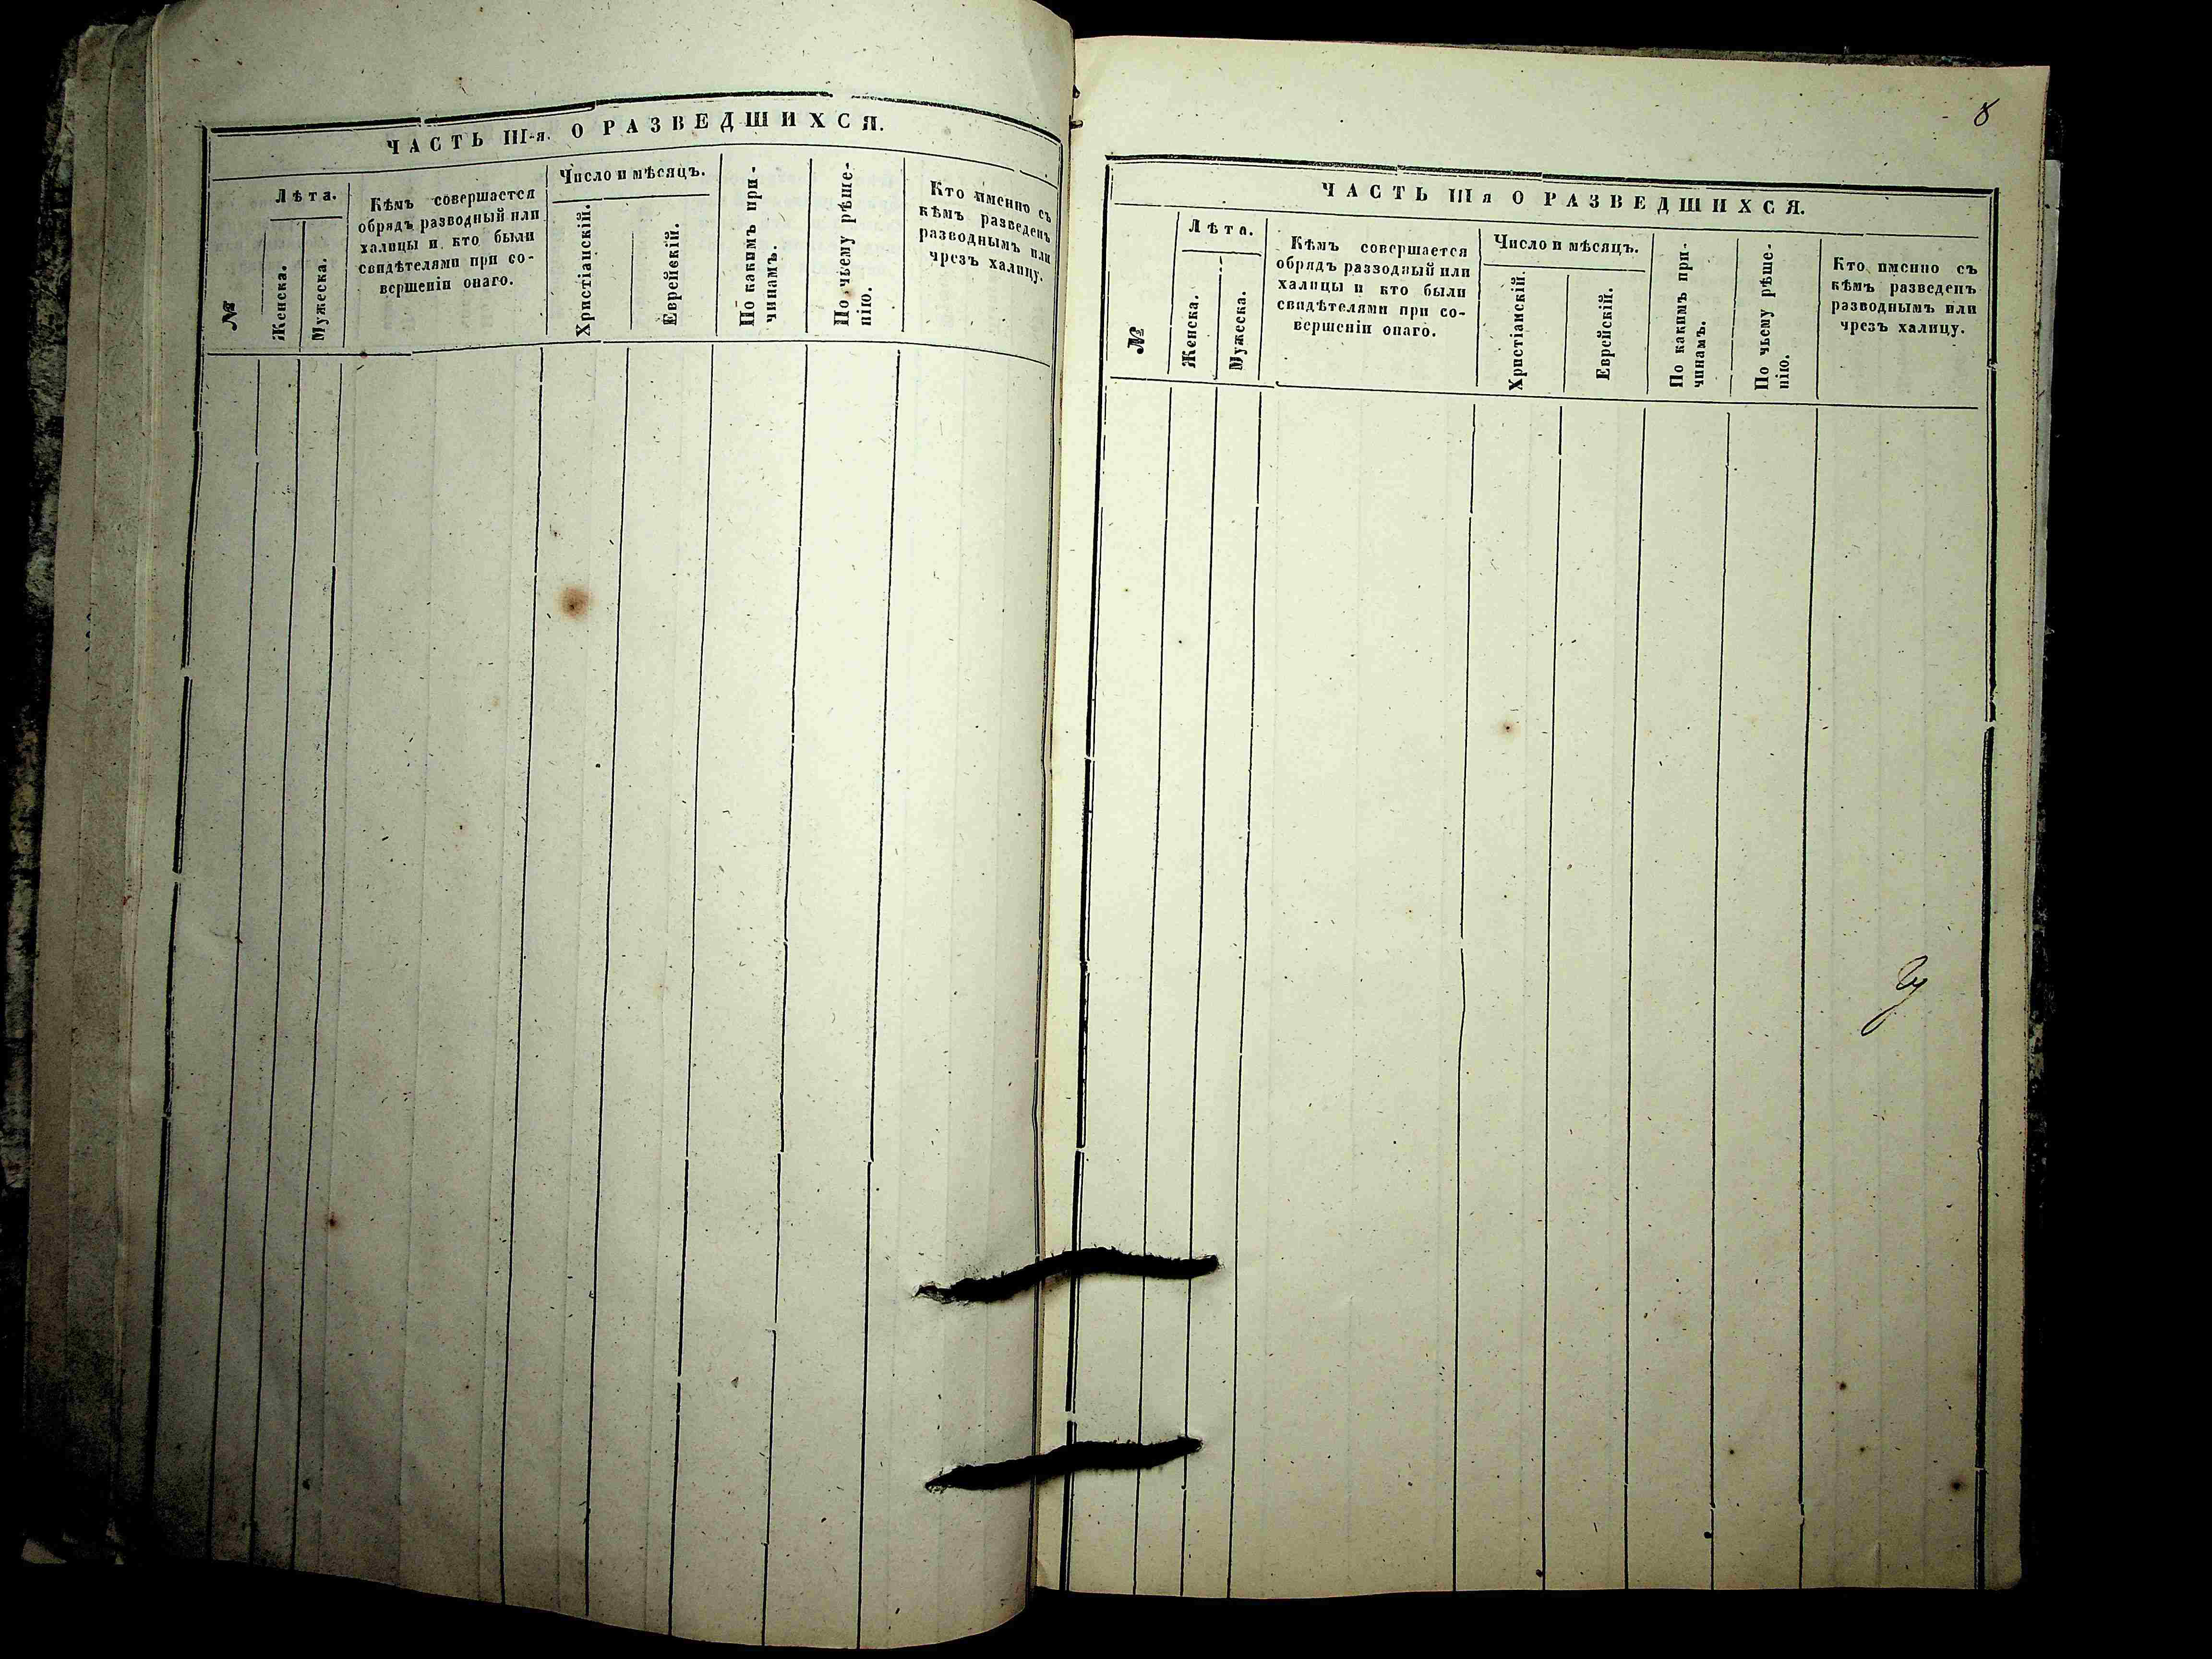 ЧАСТЬ III-я. О РАЗВЕДШИХСЯ.
№
Лѣта.
Женска.
Мужеска.
Кѣмъ совершается
обрядъ разводный или
халицы и кто были
свидѣтелями при со-
вершеніи онаго.
Число и мѣсяцъ.
Христіанскій.
Еврейскій.
По какимъ при-
чинамъ.
По чьему рѣше-
нію.
Кто именно съ
кѣмъ разведенъ
разводнымъ или
чрезъ халицу.
8
ЧАСТЬ III я О РАЗВЕДШИХСЯ.
№
Лѣта.
Женска.
Мужеска.
Кѣмъ совершается
обрядъ разводный или
халицы и кто были
свидѣтелями при со-
вершеніи онаго.
Число и мѣсяцъ.
Христіанскій.
Еврейскій.
По какимъ при-
чинамъ.
По чьему рѣше-
нію.
Кто именно съ
кѣмъ разведенъ
разводнымъ или
чрезъ халицу.